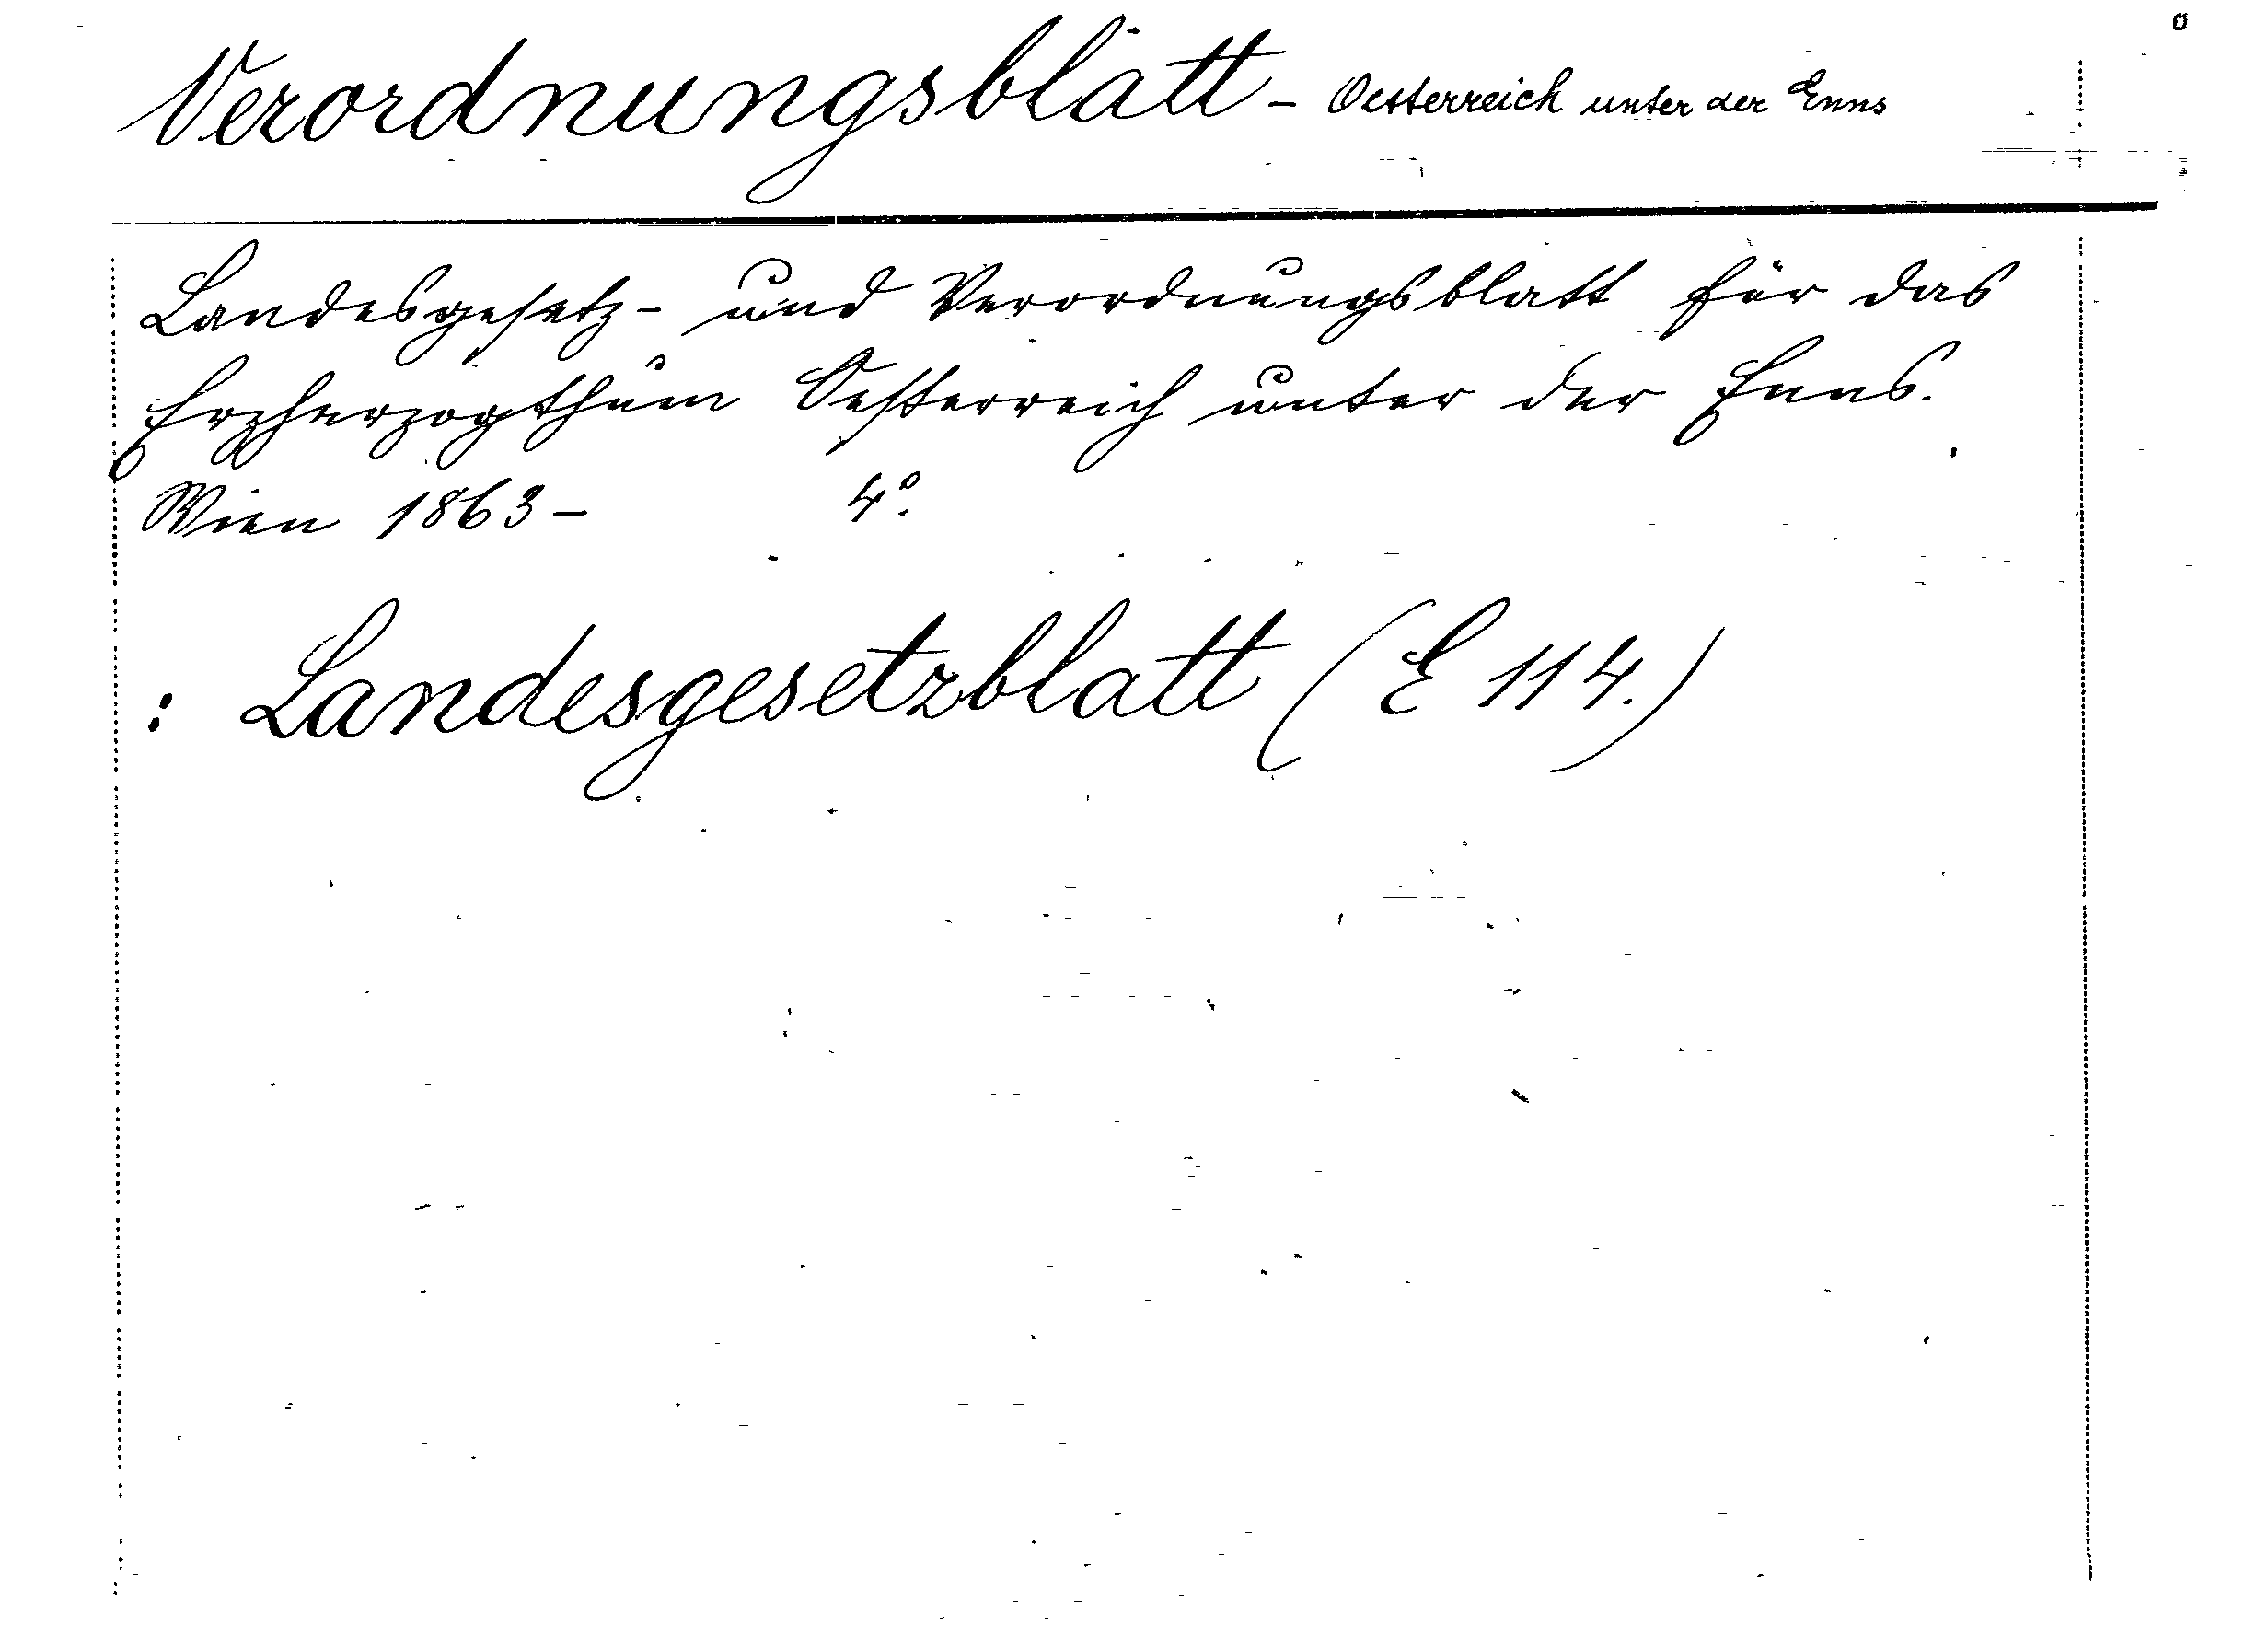 Verordnungsblatt - Oesterreich unter der Enns
Landesgesetz- und Verordnungsblatt für das
Erzherzogthum Oesterreich unter der Enns.
Wien 1863- 4°.
: Landesgesetzblatt (E 114.)